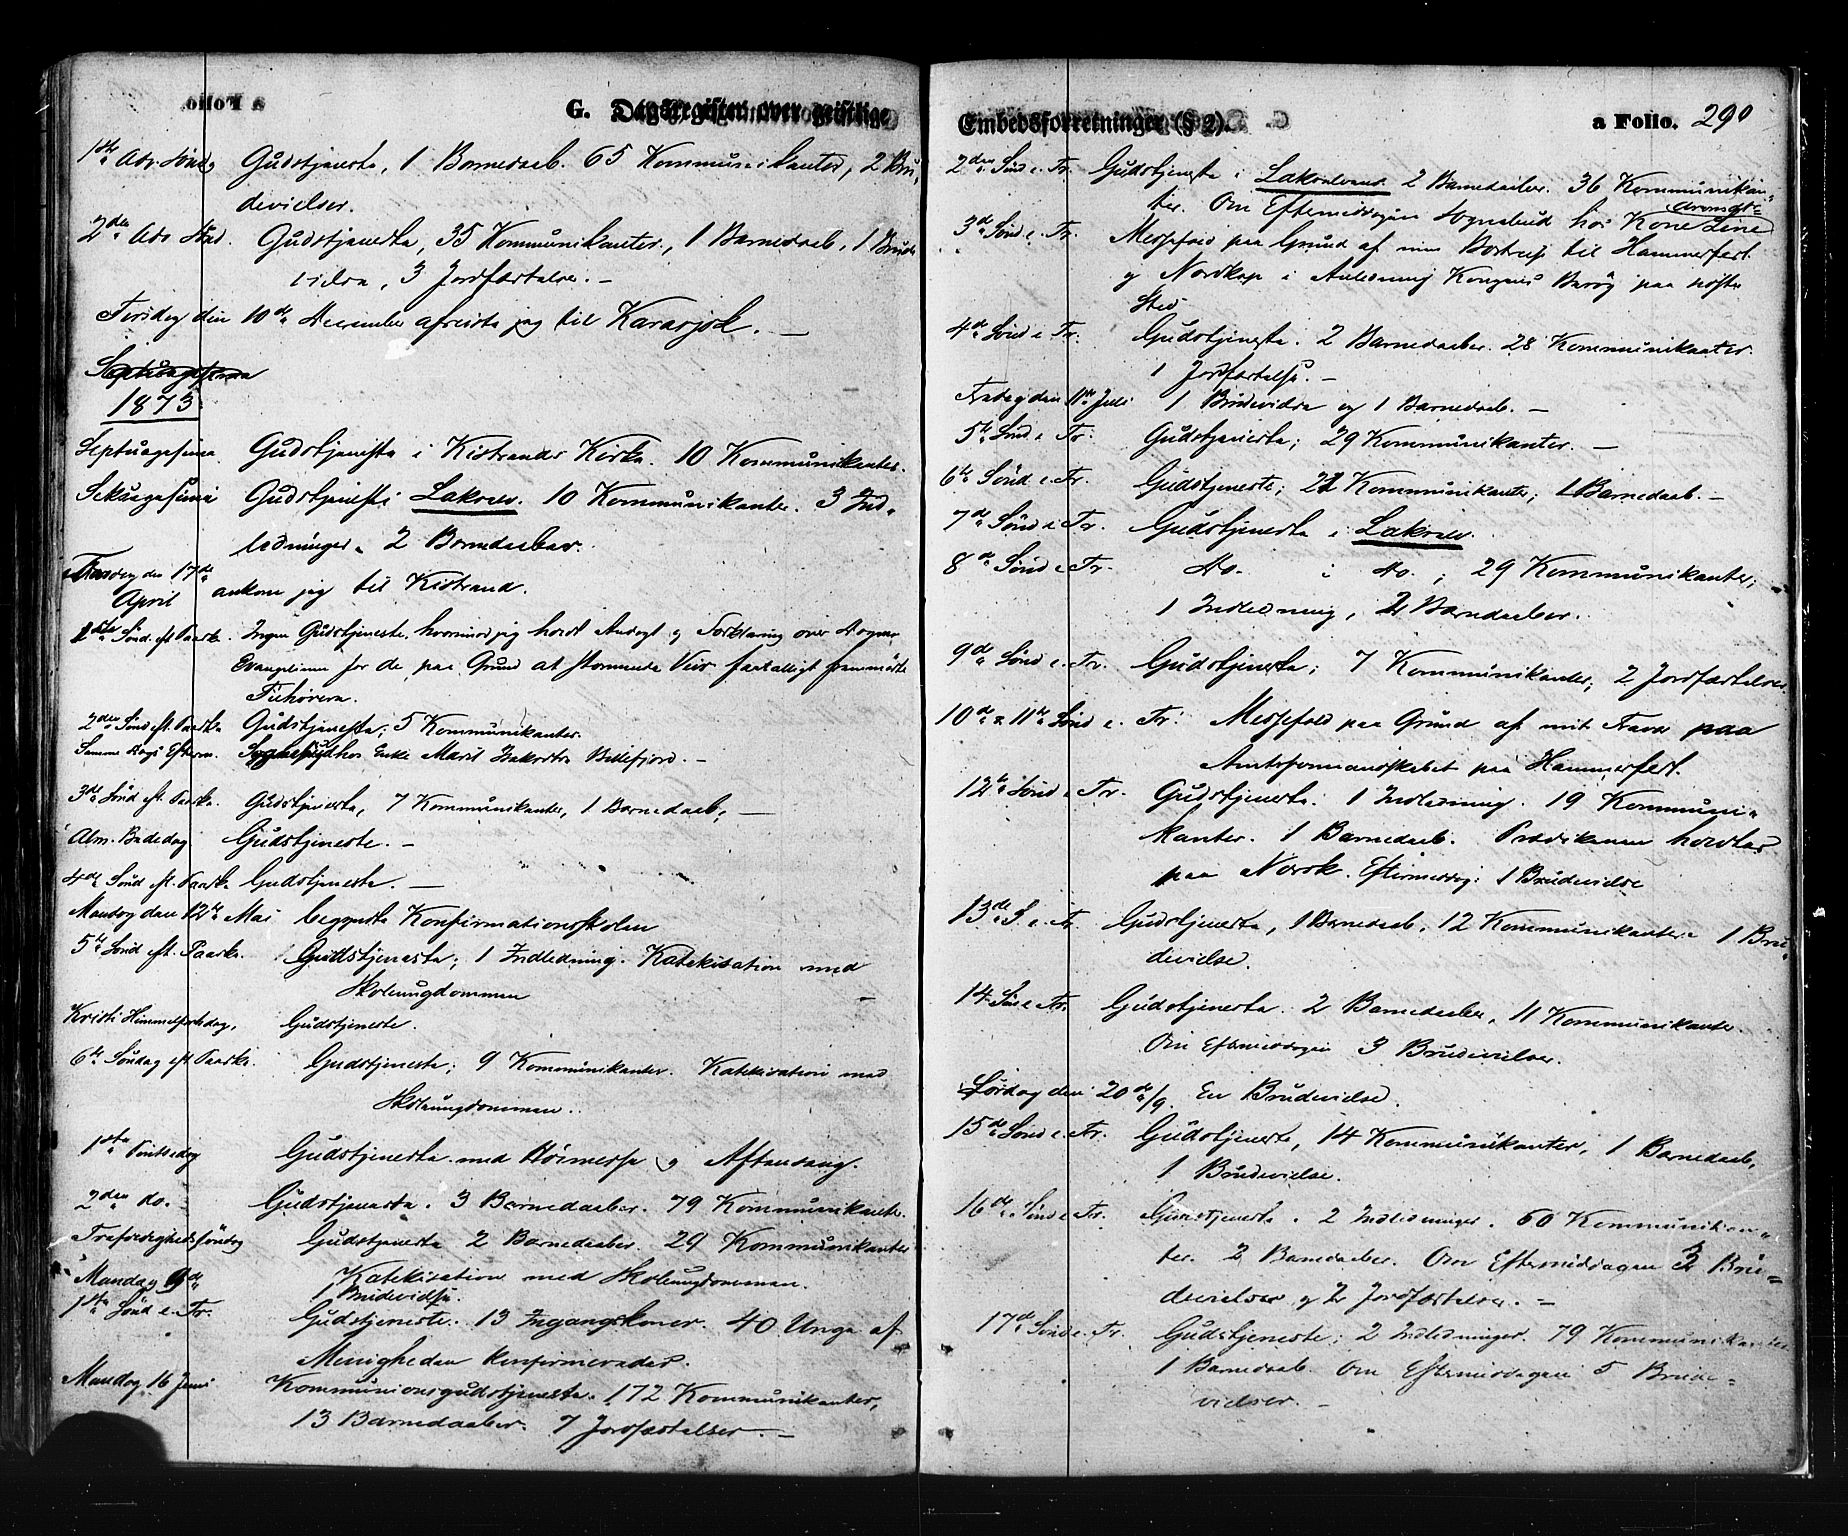 G. Dagsregister over geistlige
1ste Adv. Sønd. Gudstjeneste, 1 Barnedaab. 65 Kommunikanter, 2 Bru-
devielser.
2den Adv. Sønd. Gudstjeneste, 35 Kommunikanter, 1 Barnedaab, 1 Brude
vielse, 3 Jordfæstelser. –
den 10de December afreiste jeg til Karasjok. –
Septuagesima
1873.
Septuagesima Gudstjeneste i Kistrands Kirke. 10 Kommunikanter.
Seksagesima Gudstjeneste i Lakselv. 10 Kommunikanter. 3 Ind-
ledninger. 2 Barnedaaber.
Torsdag den 17de
April ankom jeg til Kistrand.
1ste Sønd. eft. Paaske. Ingen Gudstjeneste, hvorimod jeg holdt Andagt og Forklaring over Dagens
Evangelium for de paa Grund af stormende Veir faatalligt fremmødte
Tilhørere.
2den Sønd. eft. Paaske Gudstjeneste; 5 Kommunikanter.
Samme Dags Efterm. Sognebud hos Enke Marit Billefjord. –
3de Sønd. eft. Paaske. Gudstjeneste, 7 Kommunikanter, 1 Barnedaab, –
Alm. Bededag Gudstjeneste. –
4de Sønd eft. Paaske Gudstjeneste. –
Mandag den 12te Mai begyndte Konfirmationsskolen
5te Sønd eft. Paaske. Gudstjeneste; 1 Indledning. Katekisation med
Skoleungdommen –
Kristi Himmelfartsdag, Gudstjeneste.
6te Søndag eft Paaske. Gudstjeneste; 9 Kommunikanter. Katekisation med
Skoleungdommen.
1ste Pintsedag Gudstjeneste med Høimesse og Aftensang.
2den do. Gudstjeneste. 3 Barnedaaber. 79 Kommunikanter.
Trefoldighedssøndag Gudstjeneste 2 Barnedaaber. 29 Kommunikanter
Katekisation med Skoleungdommen.
Mandag 9de 1 Brudevielse.
1ste Sønd e. Tr. Gudstjeneste. 13 Ingangskoner. 40 Unge af
Menigheden konfirmerades.
Mandag 16 Juni Kommunionsgudstjeneste. 172 Kommunikanter,
13 Barnedaaber. 7 Jordfæstelser. –
Embedsforretninger (§ 2). a Folio. 290
2den Sønd e. Tr. Gudstjeneste i Lakselvens. 2 Barnedaaber. 36 Kommunikan-
ter. Om Eftermiddagen Sognebud hos Kone Line
3de Sønd e. Tr. Messefald paa Grund af min Bortrejse til Hammerfest
og Nordkap i Anledning Kongens Besøg paa sidste
Sted
4de Sønd e. Tr. Gudstjeneste. 2 Barnedaaber. 28 Kommunikanter.
1 Jordfæstelse. –
Fredag den 11te Juli 1 Brudevielse og 1 Barnedaab. –
5te Sønd e Tr. Gudstjeneste; 29 Kommunikanter. –
6te Sønd e. Tr. Gudstjeneste; 21 Kommunikanter; 1 Barnedaab. –
7de Sønd e. Tr. Gudstjeneste i Lakselv.
8de Sønd e Tr. Do. i do.; 29 Kommunikanter;
1 Indledning, 2 Barnedaaber.
9de Sønd e. Tr. Gudstjeneste; 7 Kommunikanter; 2 Jordfæstelser
10de & 11te Sønd e. Tr. Messefald paa Grund af mit Fravær paa
Amtsformandskabet paa Hammerfest.
12te Sønd e. Tr. Gudstjeneste. 1 Indledning. 19 Kommuni-
kanter. 1 Barnedaab. Prædikenen holdtes
paa Norsk. Eftermiddag: 1 Brudevielse
13de S. e. Tr. Gudstjeneste, 1 Barnedaab, 12 Kommunikanter. 1 Bru-
devielse.
14 Søn e Tr. Gudstjeneste. 2 Barnedaaber, 11 Kommunikanter.
Om Eftermiddagen 3 Brudevielser.
Lørdag den 20de/9. En Brudevielse.
15de Sønd e. Tr. Gudstjeneste, 14 Kommunikanter, 1 Barnedaab,
1 Brudevielse.
16de Sønd e. Tr. Gudstjeneste. 2 Indledninger. 60 Kommunikan-
ter. 2 Barnedaaber. Om Eftermiddagen 3 Bru-
devielser og 2 Jordfæstelser. –
17de Sønd e. Tr. Gudstjeneste; 2 Indledninger. 79 Kommunikanter
1 Barnedaab. Om Eftermiddagen 5 Brude-
vielser. –